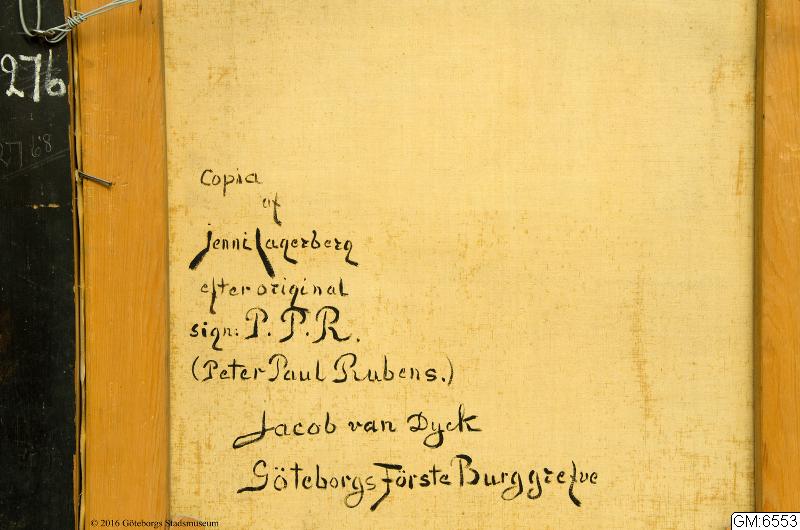 276
2768
Copia
af
Jenni Lagerberg
efter original
sign: P. P. R.
(Peter Paul Rubens.)
Jacob van Dyck
Göteborgs Förste Burggrefve
© 2016 Göteborgs Stadsmuseum
GM:6553